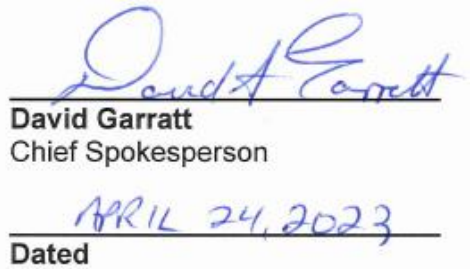 David A Garratt
David Garratt
Chief Spokesperson
APRIL 24, 2023
Dated